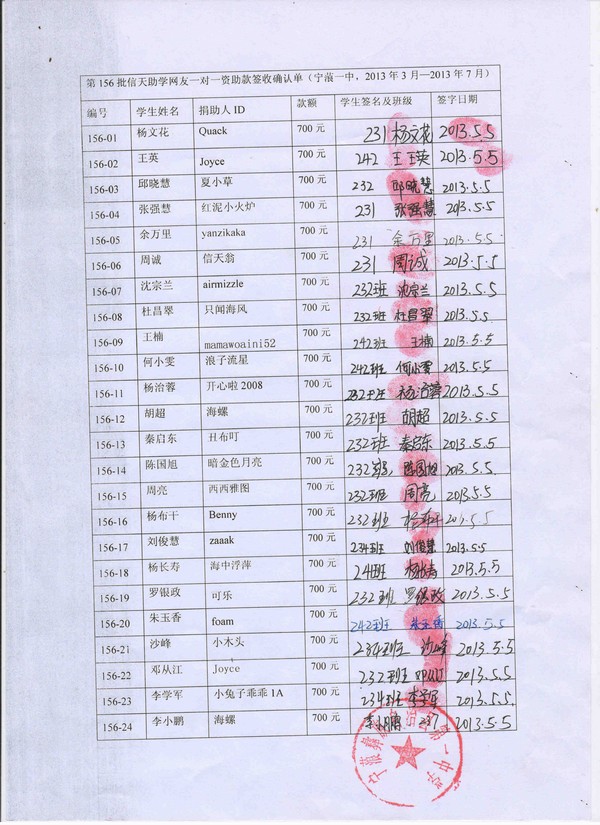 第 156 批信天助学网友一对一资助款签收确认单（宁蒗一中，2013 年 3 月—2013 年 7 月）
编号 学生姓名 捐助人 ID 款额 学生签名及班级 签字日期
156-01 杨文花 Quack 700 元 231 杨文花 2013.5.5
156-02 王英 Joyce 700 元 242 王英 2013.5.5
156-03 邱晓慧 夏小草 700 元 232 邱晓慧 2013.5.5
156-04 张强慧 红泥小火炉 700 元 231 张强慧 2013.5.5
156-05 余万里 yanzikaka 700 元 231 余万里 2013.5.5
156-06 周诚 信天翁 700 元 231 周诚 2013.5.5
156-07 沈宗兰 airmizzle 700 元 232班 沈宗兰 2013.5.5
156-08 杜昌翠 只闻海风 700 元 232班 杜昌翠 2013.5.5
156-09 王楠 mamawoaini52 700 元 242班 王楠 2013.5.5
156-10 何小雯 浪子流星 700 元 242班 何小雯 2013.5.5
156-11 杨治蓉 开心啦 2008 700 元 232班 杨治蓉 2013.5.5
156-12 胡超 海螺 700 元 232班 胡超 2013.5.5
156-13 秦启东 丑布叮 700 元 232班 秦启东 2013.5.5
156-14 陈国旭 暗金色月亮 700 元 232班 陈国旭 2013.5.5
156-15 周亮 西西雅图 700 元 232班 周亮 2013.5.5
156-16 杨布干 Benny 700 元 232班 杨布干 2013.5.5
156-17 刘俊慧 zaaak 700 元 234班 刘俊慧 2013.5.5
156-18 杨长寿 海中浮萍 700 元 杨长寿 2013.5.5
156-19 罗银政 可乐 700 元 232班 罗银政 2013.5.5
156-20 朱玉香 foam 700 元 242班 朱玉香 2013.5.5
156-21 沙峰 小木头 700 元 234班 沙峰 2013.5.5
156-22 邓从江 Joyce 700 元 232班 邓从江 2013.5.5
156-23 李学军 小兔子乖乖 1A 700 元 234班 李学军 2013.5.5
156-24 李小鹏 海螺 700 元 李小鹏 237 2013.5.5